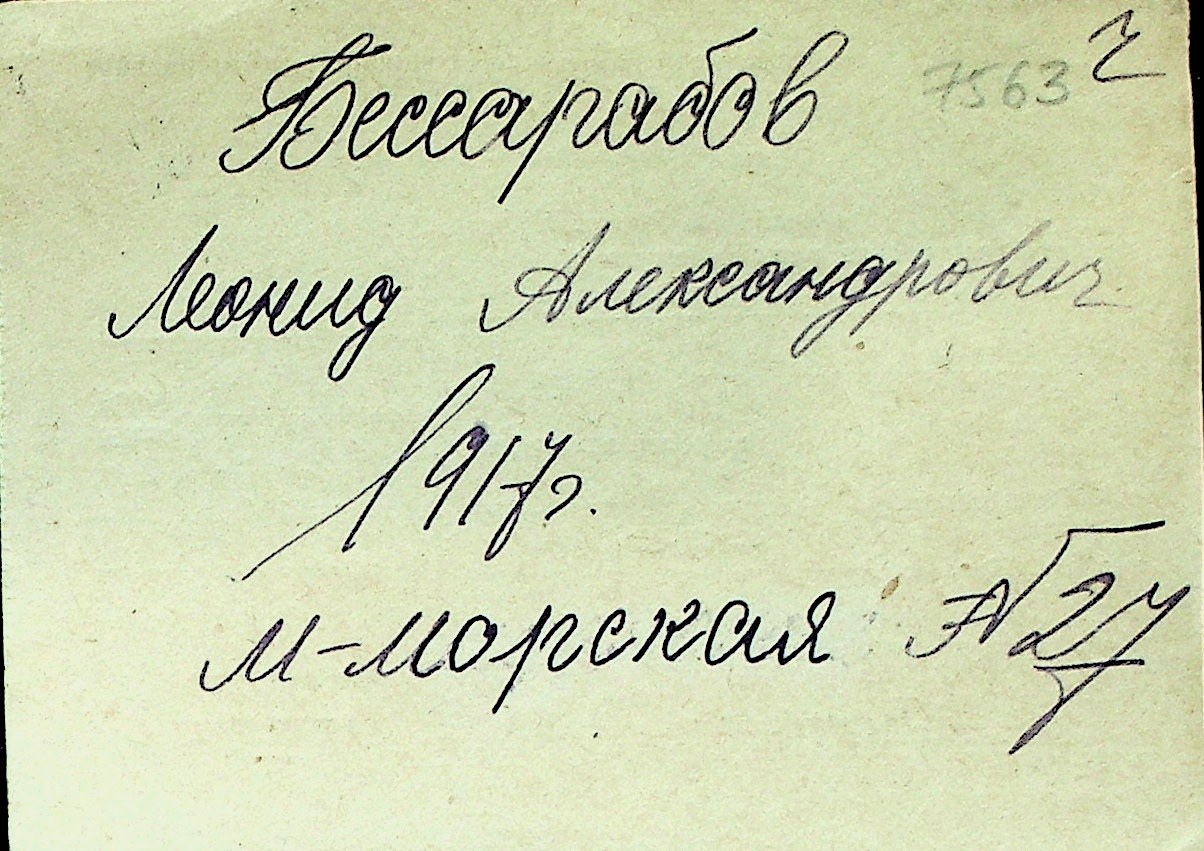 Бессарабов 7563 ч
Леонид Александрович
1917г.
м-морская №27